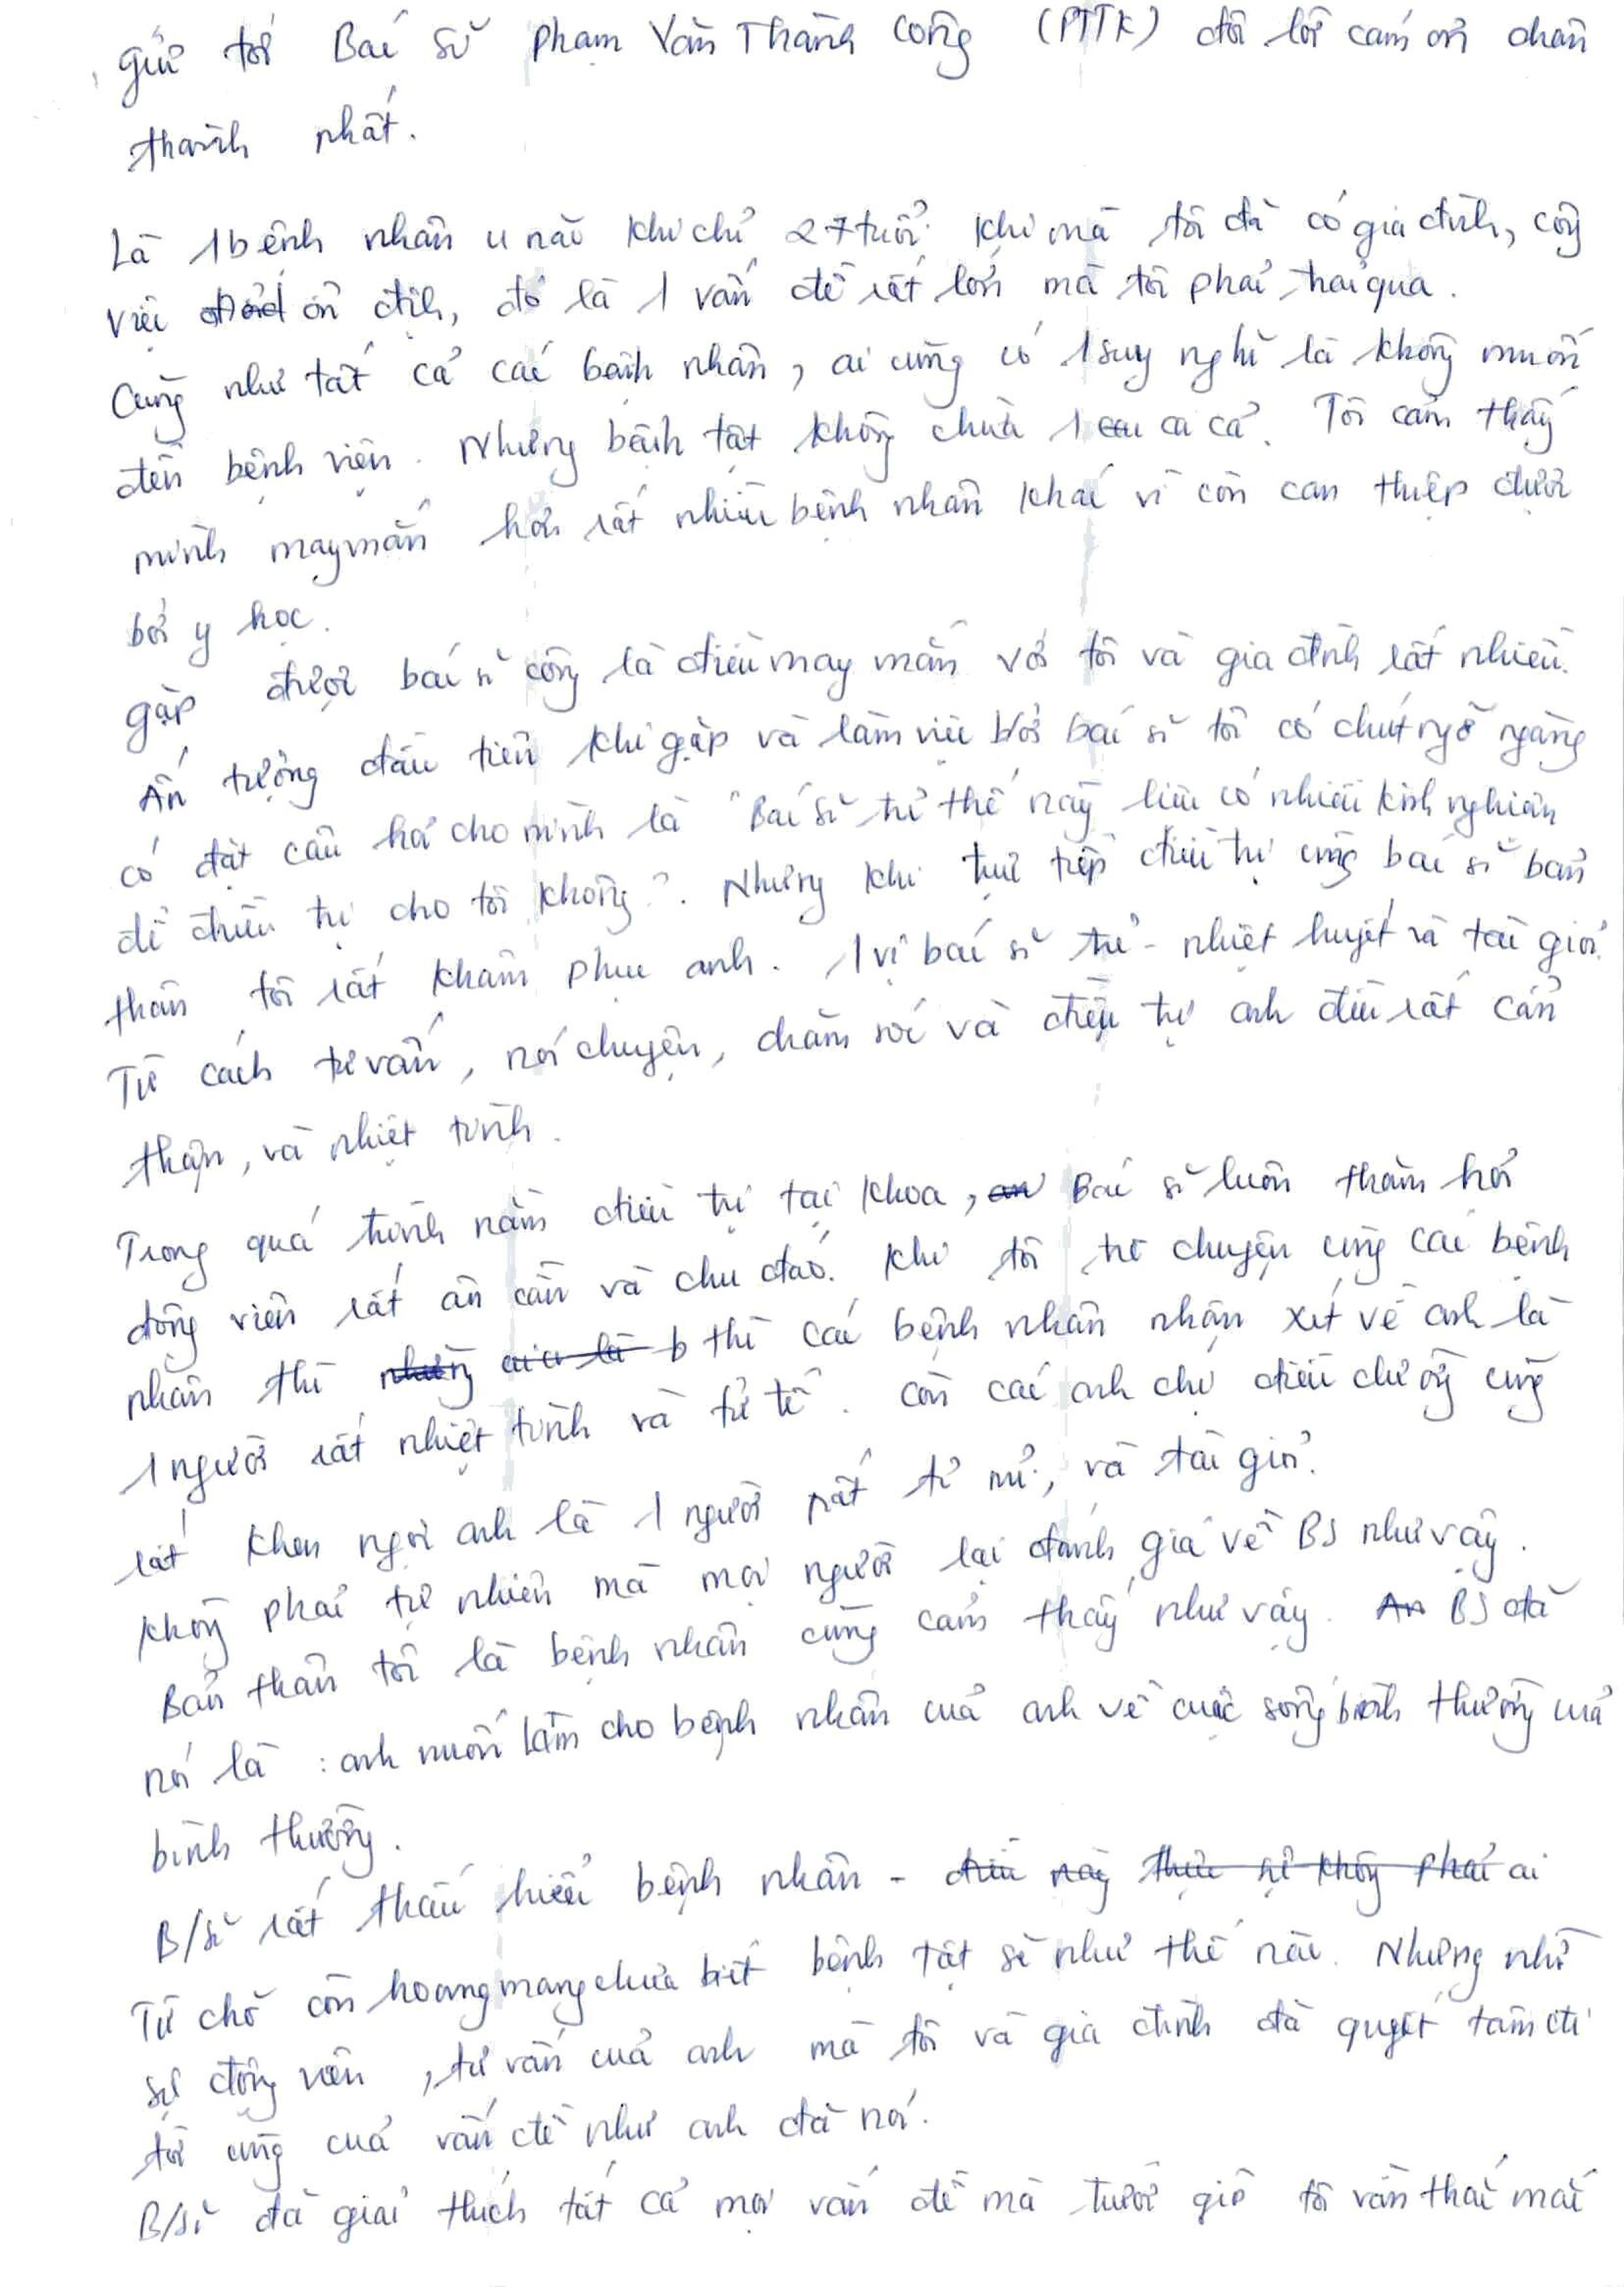 Gửi tới Bác sĩ Phạm Văn Thành Công (PTTK) đôi lời cảm ơn chân
thành nhất.
Là 1 bệnh nhân u não khi chỉ 27 tuổi. Khi mà tôi đã có gia đình, công
việc ổn định, đó là 1 vấn đề rất lớn mà tôi phải trải qua.
Cũng như tất cả các bệnh nhân, ai cũng có 1 suy nghĩ là không muốn
đến bệnh viện. Nhưng bệnh tật không chừa 1 ai cả. Tôi cảm thấy
mình may mắn hơn rất nhiều bệnh nhân khác vì còn can thiệp được
bởi y học.
Gặp được bác sĩ Công là điều may mắn với tôi và gia đình rất nhiều.
Ấn tượng đầu tiên khi gặp và làm việc với bác sĩ tôi có chút ngỡ ngàng
có đặt câu hỏi cho mình là "Bác sĩ trẻ thế này liệu có nhiều kinh nghiệm
để điều trị cho tôi không?. Nhưng khi trực tiếp điều trị cùng bác sĩ bản
thân tôi rất khâm phục anh. 1 vị bác sĩ trẻ - nhiệt huyết và tài giỏi.
Từ cách tư vấn, nói chuyện, chăm sóc và điều trị anh đều rất cẩn
thận, và nhiệt tình.
Trong quá trình nằm điều trị tại khoa, Bác sĩ luôn thăm hỏi
động viên rất ân cần và chu đáo. Khi tôi trò chuyện cùng các bệnh
nhân thì thì các bệnh nhân nhận xét về anh là
1 người rất nhiệt tình và tử tế. Còn các anh chị điều dưỡng cũng
rất khen ngợi anh là 1 người rất tỉ mỉ, và tài giỏi.
Không phải tự nhiên mà mọi người lại đánh giá về BS như vậy.
Bản thân tôi là bệnh nhân cũng cảm thấy như vậy. BS đã
nói là : anh muốn làm cho bệnh nhân của anh về cuộc sống bình thường của
bình thường.
B/sĩ rất thấu hiểu bệnh nhân - ai
Từ chỗ còn hoang mang chưa biết bệnh tật sẽ như thế nào. Nhưng nhờ
sự động viên, tư vấn của anh mà tôi và gia đình đã quyết tâm đi
tới cùng của vấn đề như anh đã nói.
B/sĩ đã giải thích tất cả mọi vấn đề mà trước giờ tôi vẫn thắc mắc